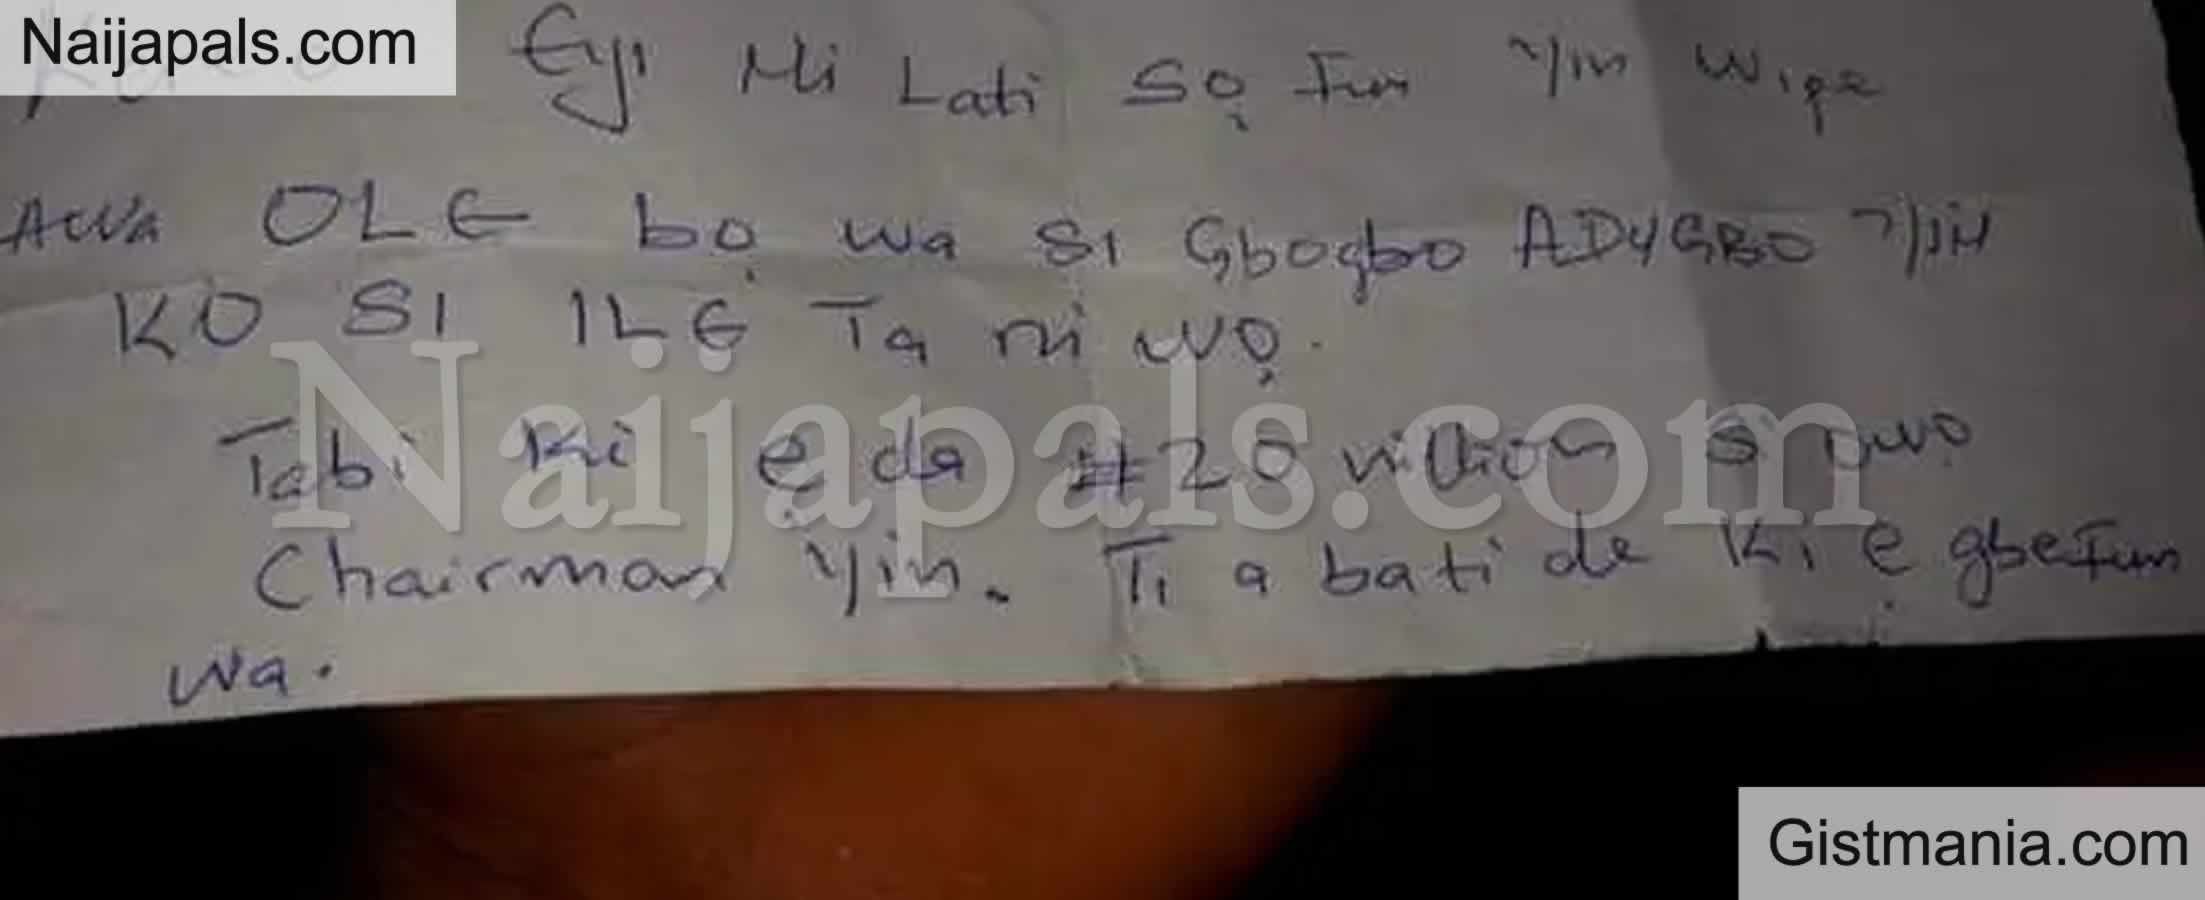 Naijapals.com
Eyi Ni Lati Sọ Fun Yin Wipe
AWa OLE bọ wa si Gbogbo ADUGBO YIN
KO SI ILE Ta ni wọ.
Tabi Ki ẹ da #20 million si owo
Chairman Yin. Ti a bati de Ki ẹ gbe Fun
wa.
Naijapals.com
Gistmania.com